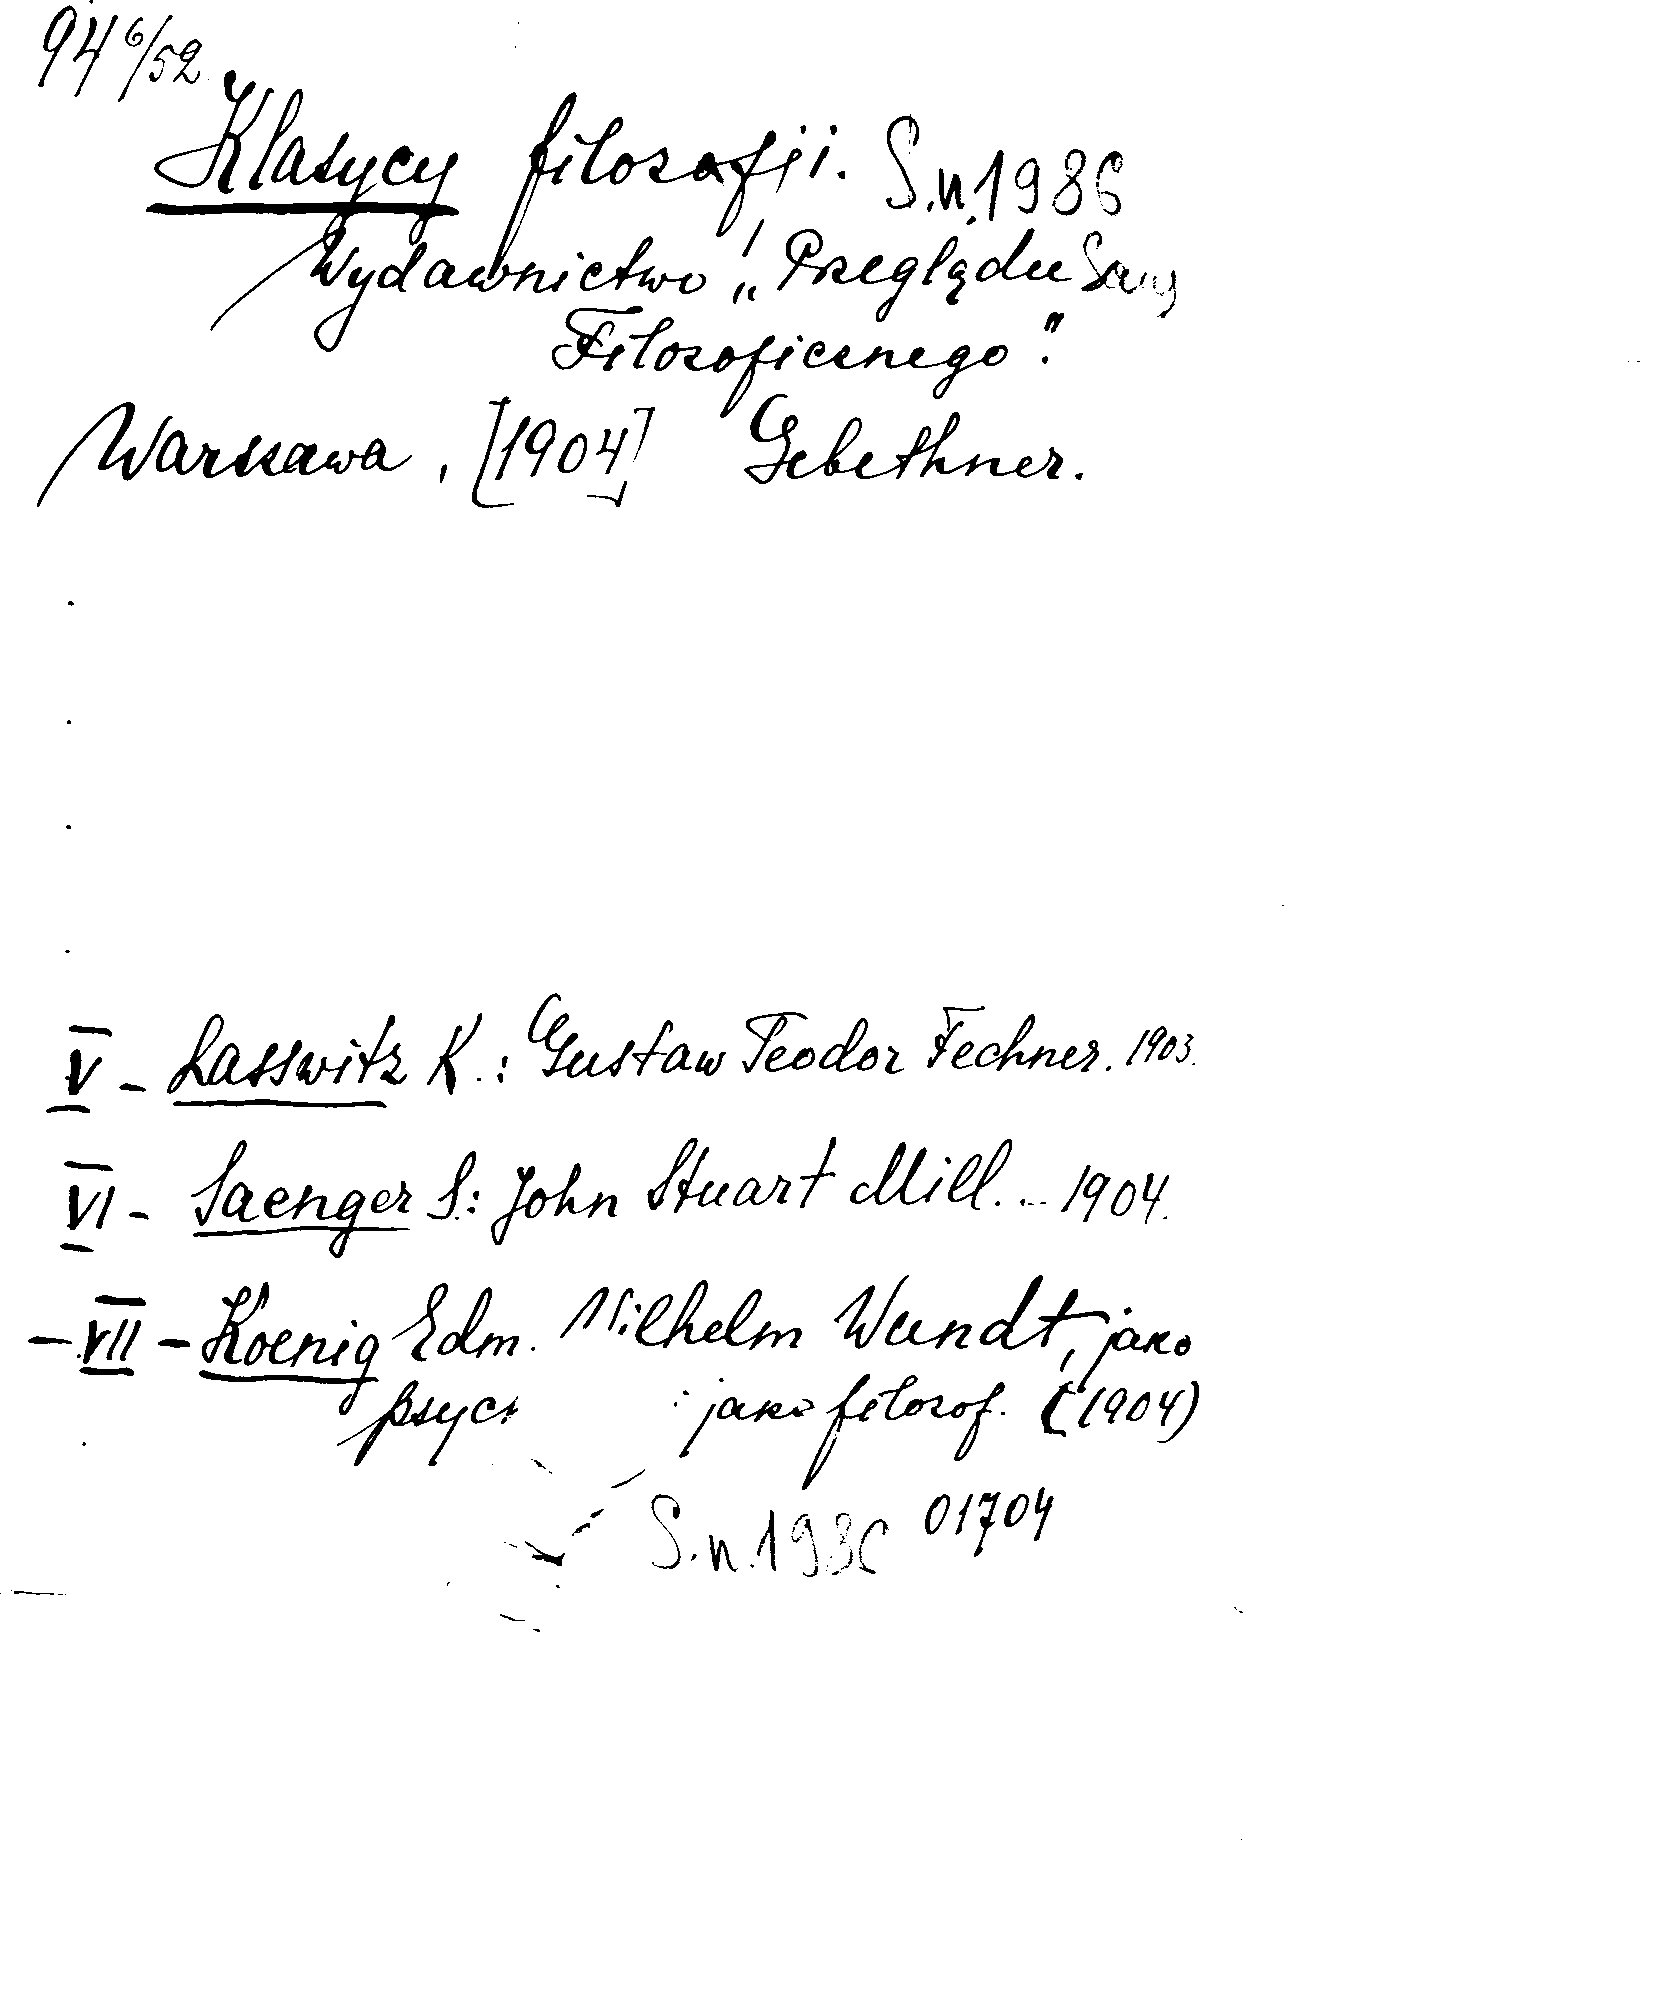 94 6/52
Klasycy filozofji. S.n.1986
Wydawnictwo „Przeglądu
Filozoficznego".
Warszawa, [1904] Gebethner.
V - Lasswitz K.: Gustaw Teodor Fechner. 1903.
VI - Saenger S.: John Stuart Mill. - 1904.
- VII - Koenig Edm. Wilhelm Wundt, jako
jako filozof. (1904)
S.n. 01704